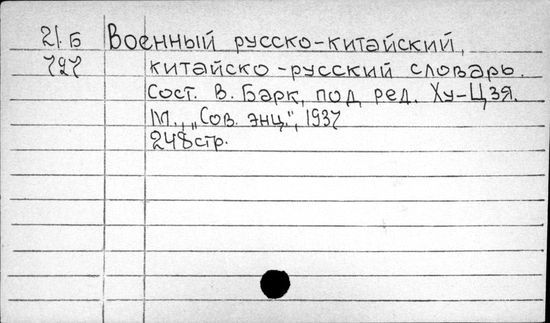 21.Б Военный русско-китайский,
727 китайско-русский словарь.
Сост. В. Барк, под ред. Ху-Цзя.
М., „Сов. энц.", 1937
248стр.